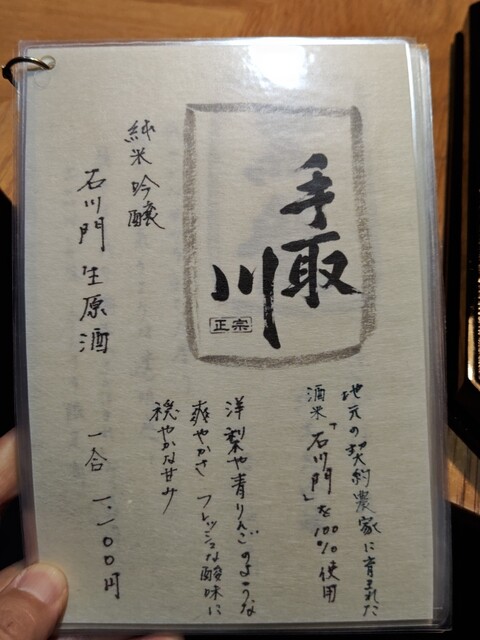 手取川
正宗
純米吟醸
石川門 生原酒
地元の契約農家に育まれた
酒米「石川門」を100%使用
洋梨や青りんごのような
爽やかさ フレッシュな酸味に
穏やかな甘み
一合 一、一〇〇円